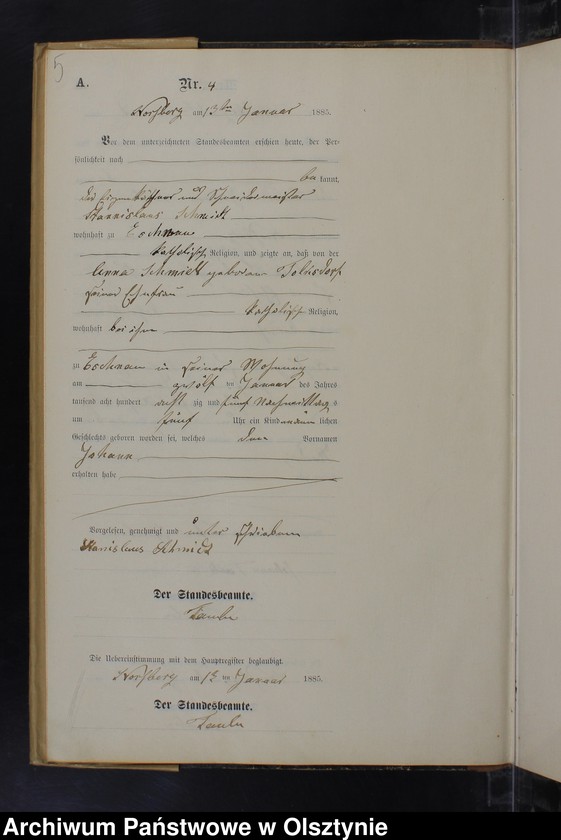 5
A. Nr. 4
am 13ten Januar 1885.
Vor dem unterzeichneten Standesbeamten erschien heute, der Per-
sönlichkeit nach
bekannt,
der und Schneidermeister
Stannislaus Schmidt
wohnhaft zu Eschenau
katholischer Religion, und zeigte an, daß von der
Anna Schmidt geborene
seiner Ehefrau
katholischer Religion,
wohnhaft bei ihm
zu Eschenau in seiner Wohnung
am zwölf ten Januar des Jahres
tausend acht hundert acht zig und fünf Nachmittags
um fünf Uhr ein Kind männlichen
Geschlechts geboren worden sei, welches den Vornamen
Johann
erhalten habe
Vorgelesen, genehmigt und unterschrieben
Stanislaus Schmidt
Der Standesbeamte.
Die Uebereinstimmung mit dem Hauptregister beglaubigt.
am 13 ten Januar 1885.
Der Standesbeamte.
Archiwum Państwowe w Olsztynie